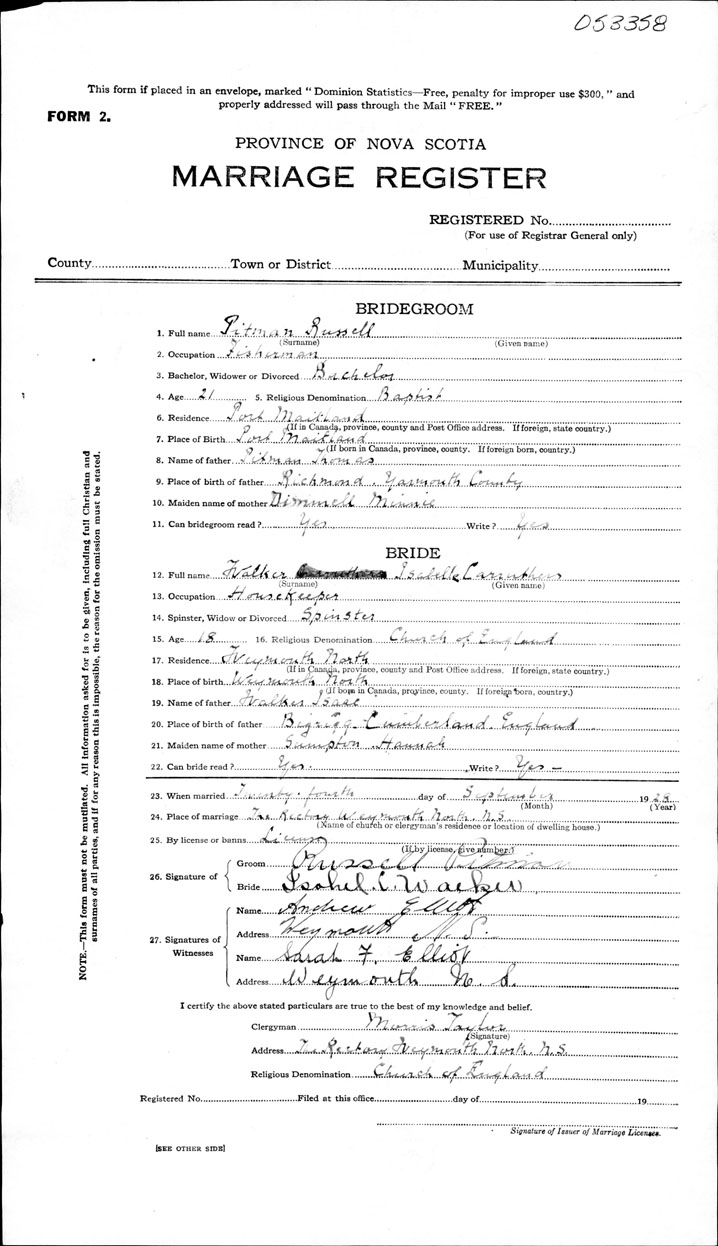 053358
This form if placed in an envelope, marked "Dominion Statistics—Free, penalty for improper use $300," and
properly addressed will pass through the Mail "FREE."
FORM 2.
PROVINCE OF NOVA SCOTIA
MARRIAGE REGISTER
REGISTERED No.
(For use of Registrar General only)
County Town or District Municipality
BRIDEGROOM
1. Full name Pitman Russell
(Surname) (Given name)
2. Occupation Fisherman
3. Bachelor, Widower or Divorced Bachelor
4. Age 21 5. Religious Denomination Baptist
6. Residence Port Maitland
(If in Canada, province, county and Post Office address. If foreign, state country.)
7. Place of Birth Port Maitland
(If born in Canada, province, county. If foreign born, country.)
8. Name of father Pitman Thomas
9. Place of birth of father Richmond, Yarmouth County
10. Maiden name of mother Minnie
11. Can bridegroom read? Yes Write? Yes
BRIDE
12. Full name Walker Isabelle Carruthers
(Surname) (Given name)
13. Occupation Housekeeper
14. Spinster, Widow or Divorced Spinster
15. Age 18 16. Religious Denomination Church of England
17. Residence Weymouth North
(If in Canada, province, county and Post Office address. If foreign, state country.)
18. Place of birth Weymouth North
(If born in Canada, province, county. If foreign born, country.)
19. Name of father Walker Isaac
20. Place of birth of father Bigrigg Cumberland England
21. Maiden name of mother Sumpton Hannah
22. Can bride read? Yes. Write? Yes –
23. When married Twenty-fourth day of September 19 28
(Month) (Year)
24. Place of marriage The Rectory Weymouth North, N.S.
(Name of church or clergyman's residence or location of dwelling house.)
25. By license or banns License
(If by license, give number.)
26. Signature of Groom Russell Pitman
Bride Isabel C. Walker
27. Signatures of Witnesses Name Andrew Elliot
Address Weymouth N.S.
Name Sarah F. Elliot
Address Weymouth N.S.
I certify the above stated particulars are true to the best of my knowledge and belief.
Clergyman Morris Taylor
(Signature)
Address The Rectory Weymouth North, N.S.
Religious Denomination Church of England
Registered No. Filed at this office day of 19
Signature of Issuer of Marriage Licenses.
[SEE OTHER SIDE]
NOTE.—This form must not be mutilated. All information asked for is to be given, including full Christian and
surnames of all parties, and if for any reason this is impossible, the reason for the omission must be stated.